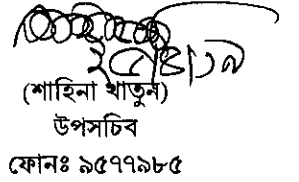 ২৫/৪/১৯
(শাহিনা খাতুন)
উপসচিব
ফোনঃ ৯৫৭৭৯৮৫